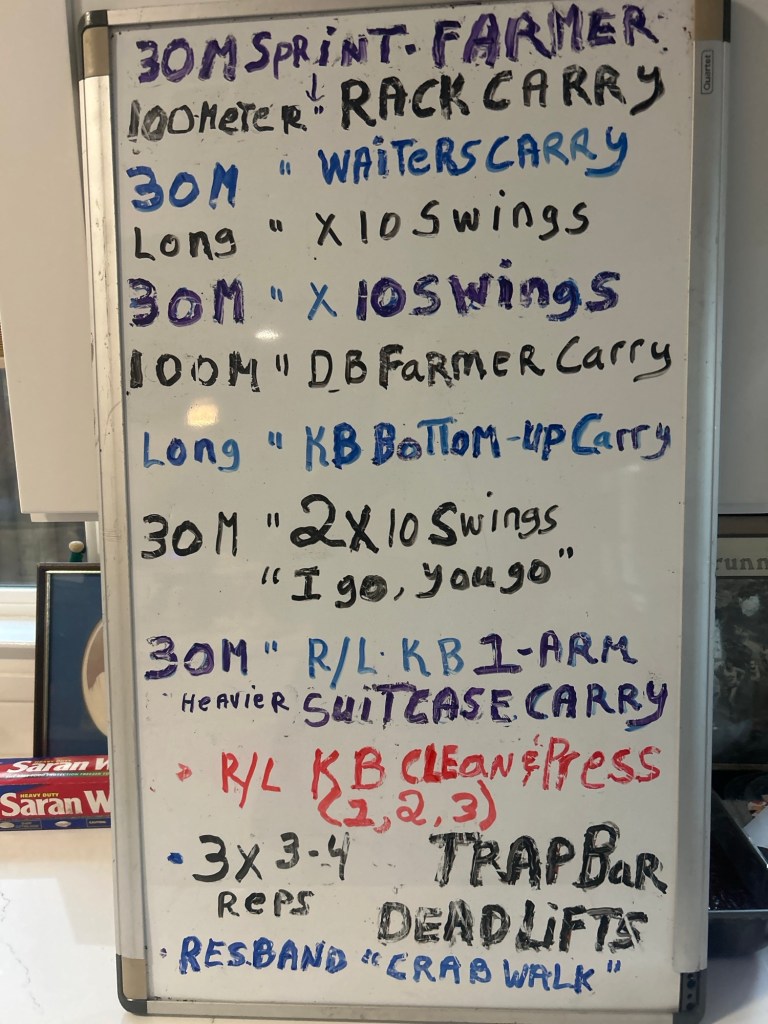 30M SPRINT. FARMER
↓
100METER " RACK CARRY
30M " WAITERS CARRY
Long " X 10 Swings
30M " X 10 Swings
100M " DB FARMER Carry
Long " KB BOTTOM-UP Carry
30M " 2X10 Swings
"I go, you go"
30M " R/L. KB 1-ARM
HEAVIER SUITCASE CARRY
R/L KB CLEAN & Press
(1, 2, 3)
• 3X 3-4 TRAP BAR
REPS DEADLIFTS
• RES.BAND "CRAB WALK"
Quartet
Saran W
HEAVY DUTY
Saran W
runn